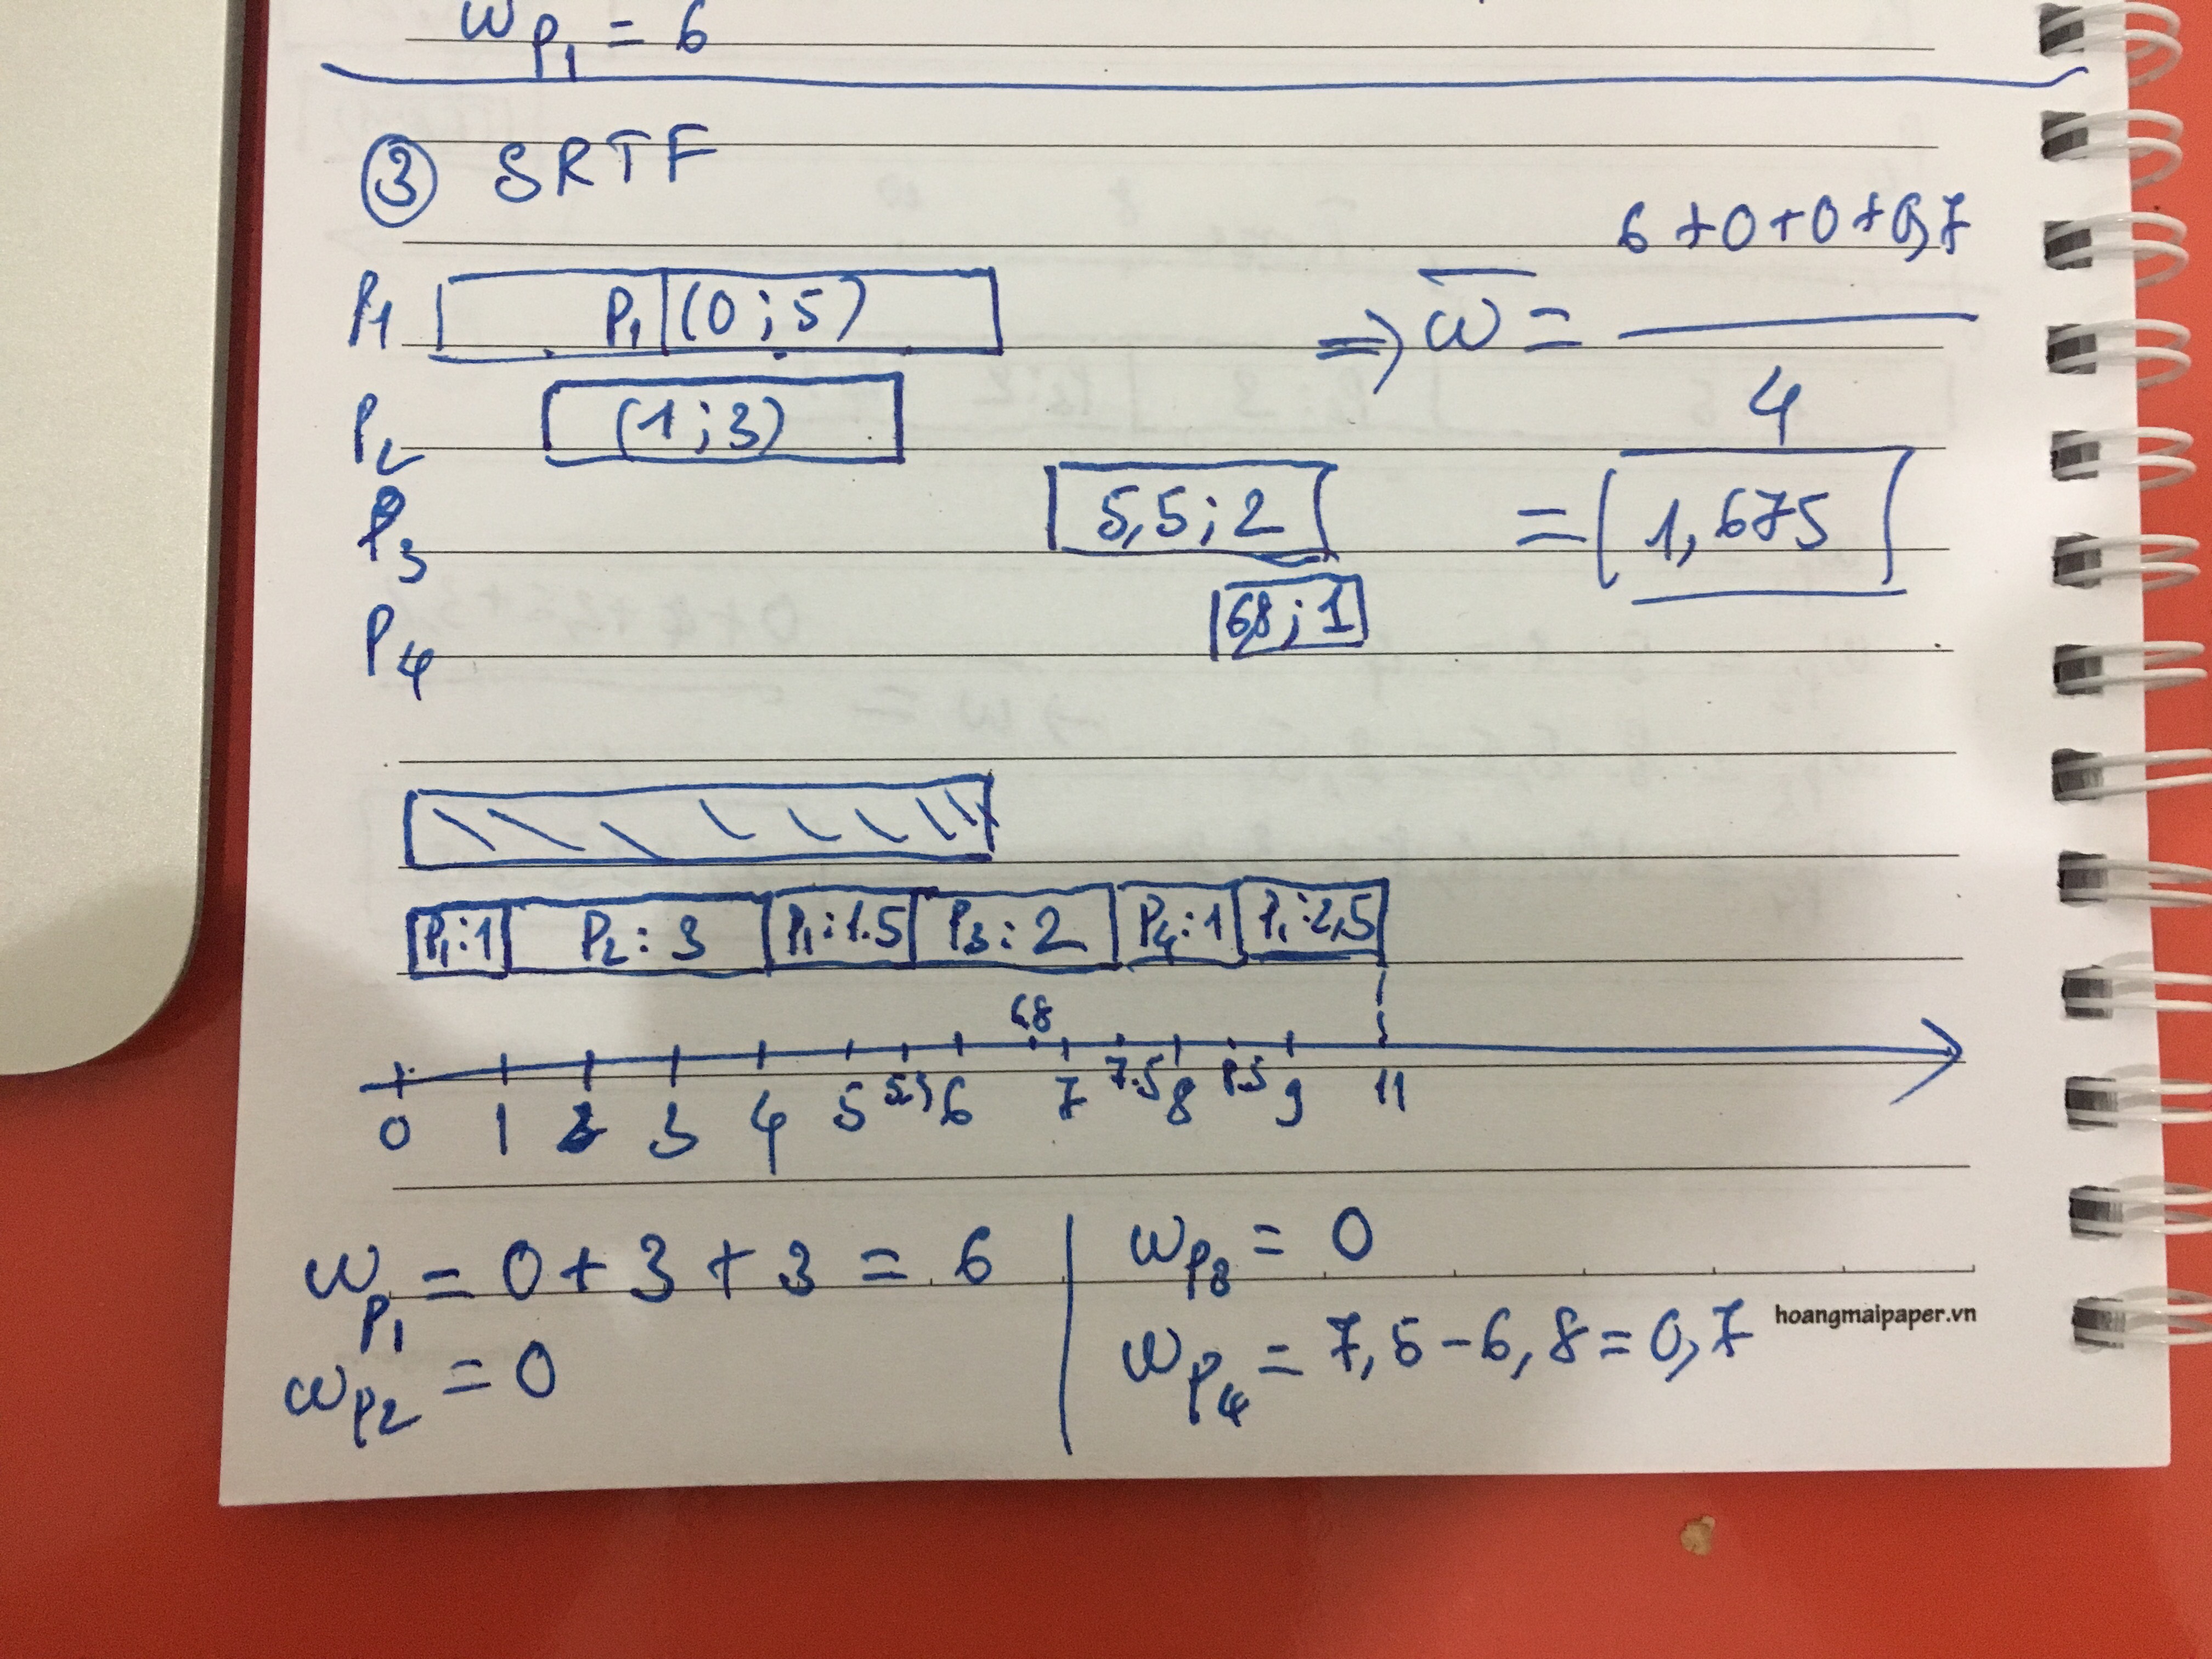 W P1 = 6
③ SRTF
P1 P1 (0;5)
P2 (1;3)
P3 5,5;2
P4 6,8;1
⇒ W̄ = 6+0+0+0,7
4
= 1,675
P1:1 P2:3 P1:1.5 P3:2 P4:1 P1:2,5
6,8
0 1 2 3 4 5 5.5 6 7 7.5 8 8.5 9 11
W P1 = 0+3+3 = 6
W P2 = 0
W P3 = 0
W P4 = 7,5-6,8=0,7
hoangmaipaper.vn